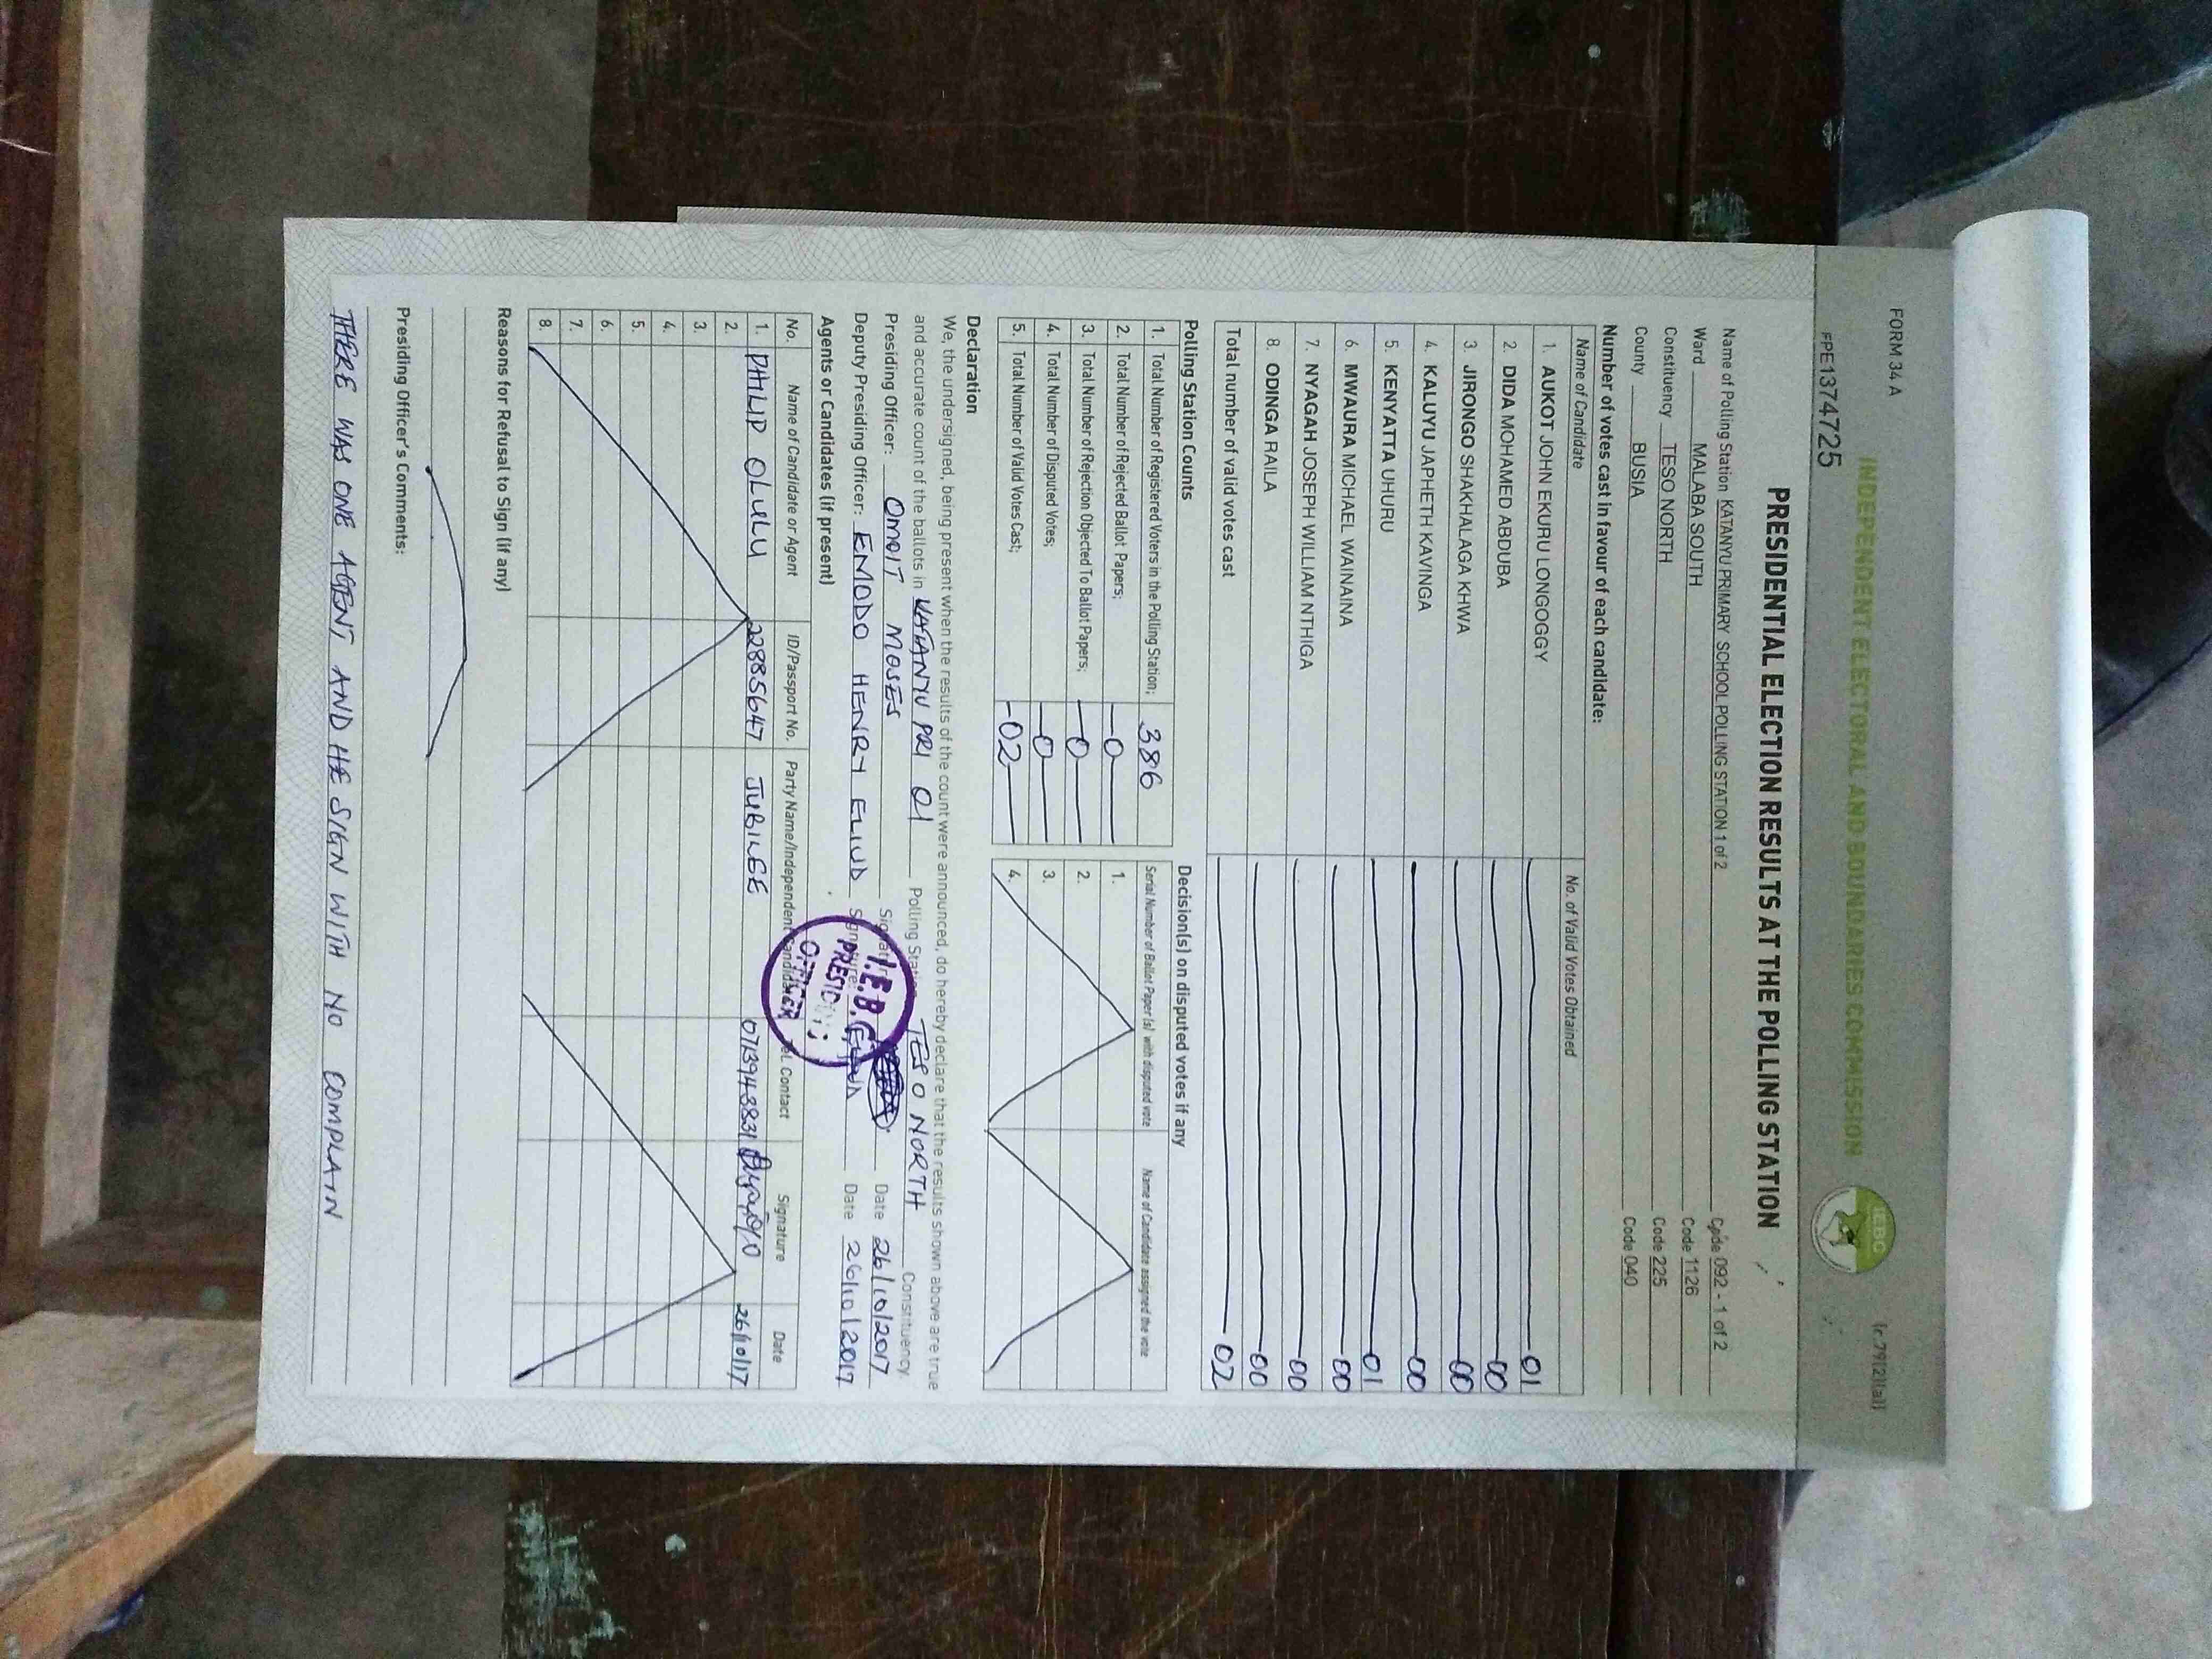 FORM 34 A
(r.79(2)(a))
INDEPENDENT ELECTORAL AND BOUNDARIES COMMISSION
IEBC
FPE1374725
PRESIDENTIAL ELECTION RESULTS AT THE POLLING STATION
Name of Polling Station KATANYU PRIMARY SCHOOL POLLING STATION 1 of 2 Code 092 - 1 of 2
Ward MALABA SOUTH Code 1126
Constituency TESO NORTH Code 225
County BUSIA Code 040
Number of votes cast in favour of each candidate:
Name of Candidate No. of Valid Votes Obtained
1. AUKOT JOHN EKURU LONGOGGY 01
2. DIDA MOHAMED ABDUBA 00
3. JIRONGO SHAKHALAGA KHWA 00
4. KALUYU JAPHETH KAVINGA 00
5. KENYATTA UHURU 01
6. MWAURA MICHAEL WAINAINA 00
7. NYAGAH JOSEPH WILLIAM NTHIGA 00
8. ODINGA RAILA 00
Total number of valid votes cast 02
Polling Station Counts
1. Total Number of Registered Voters in the Polling Station; 386
2. Total Number of Rejected Ballot Papers; -0-
3. Total Number of Rejection Objected To Ballot Papers; -0-
4. Total Number of Disputed Votes; -0-
5. Total Number of Valid Votes Cast; -02-
Decision(s) on disputed votes if any
Serial Number of Ballot Paper (s) with disputed vote Name of Candidate assigned the vote
1.
2.
3.
4.
Declaration
We, the undersigned, being present when the results of the count were announced, do hereby declare that the results shown above are true
and accurate count of the ballots in KATANYU PRI 01 Polling Station TESO NORTH Constituency
Presiding Officer: OMOIT MOSES Signature Date 26/10/2017
Deputy Presiding Officer: EMODO HENRY ELIUD Signature Date 26/10/2017
I.E.B.C
PRESIDING
OFFICER
Agents or Candidates (if present)
No. Name of Candidate or Agent ID/Passport No. Party Name/Independent Candidate Tel. Contact Signature Date
1. PHILIP OLULU 22885647 JUBILEE 0713943831 26/10/17
2.
3.
4.
5.
6.
7.
8.
Reasons for Refusal to Sign (if any)
Presiding Officer's Comments:
THERE WAS ONE AGENT AND HE SIGN WITH NO COMPLAIN